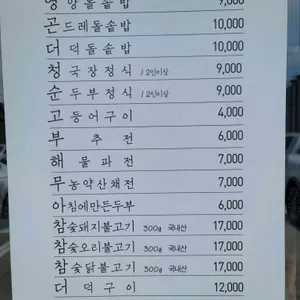 영양돌솥밥 9,000
곤드레돌솥밥 10,000
더덕돌솥밥 10,000
청국장정식 / 2인이상 9,000
순두부정식 / 2인이상 9,000
고등어구이 4,000
부추전 6,000
해물파전 7,000
무농약산채전 7,000
아침에만든두부 6,000
참숯돼지불고기 300g 국내산 17,000
참숯오리불고기 300g 국내산 17,000
참숯닭불고기 300g 국내산 17,000
더덕구이 12,000